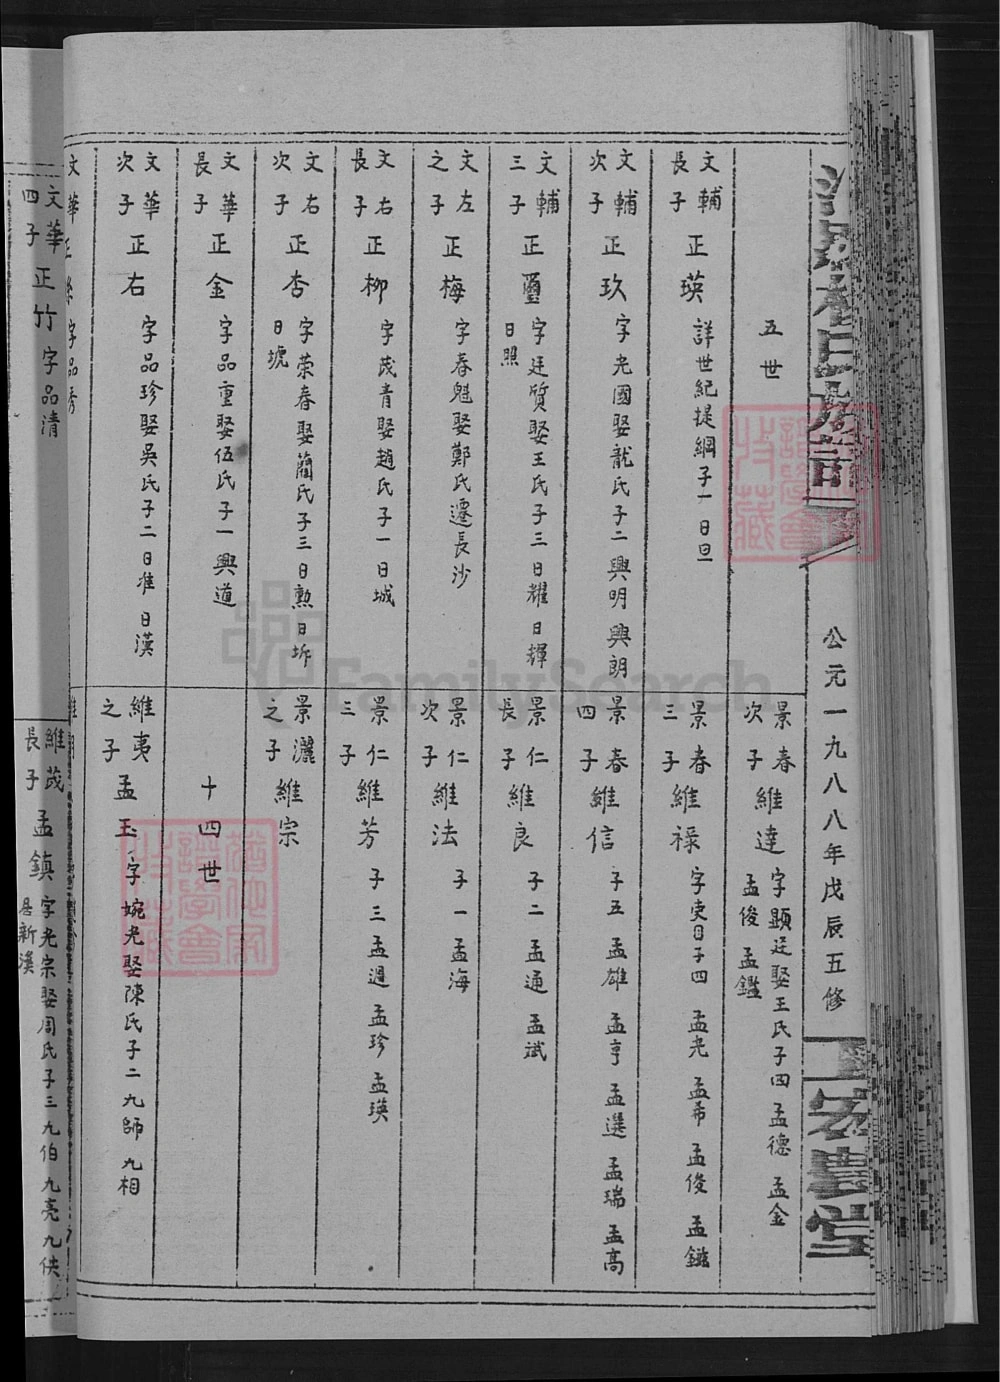 公元一九八八年戊辰五修
五世
文輔長子 正瑛 詳世紀提綱子一 日旦
文輔次子 正玖 字光國娶龍氏子二 興明 興朗
文輔三子 正璽 字廷質娶王氏子三 日耀 日輝 日照
文左之子 正梅 字春魁娶鄭氏遷長沙
文右長子 正柳 字茂青娶趙氏子一 日城
文右次子 正杏 字榮春娶蘭氏子三 日勲 日坼 日墟
文華長子 正金 字品重娶伍氏子一 興道
文華次子 正右 字品珍娶吳氏子二 日准 日漢
景春次子 維達 字顯廷娶王氏子四 孟德 孟金 孟俊 孟鑑
景春三子 維禄 字吏目子四 孟光 孟希 孟俊 孟鎰
景春四子 維信 子五 孟雄 孟亨 孟選 孟瑞 孟高
景仁長子 維良 子二 孟通 孟斌
景仁次子 維法 子一 孟海
景仁三子 維芳 子三 孟週 孟珍 孟瑛
景灑之子 維宗
十四世
維夷之子 孟玉 字婉光娶陳氏子二 九師 九相
文華 正 字品秀
文華四子 正竹 字品清
維茂長子 孟鎮 字光宗娶周氏子三 九伯 九亮 九佚 居新溪
FamilySearch
譜學會收藏